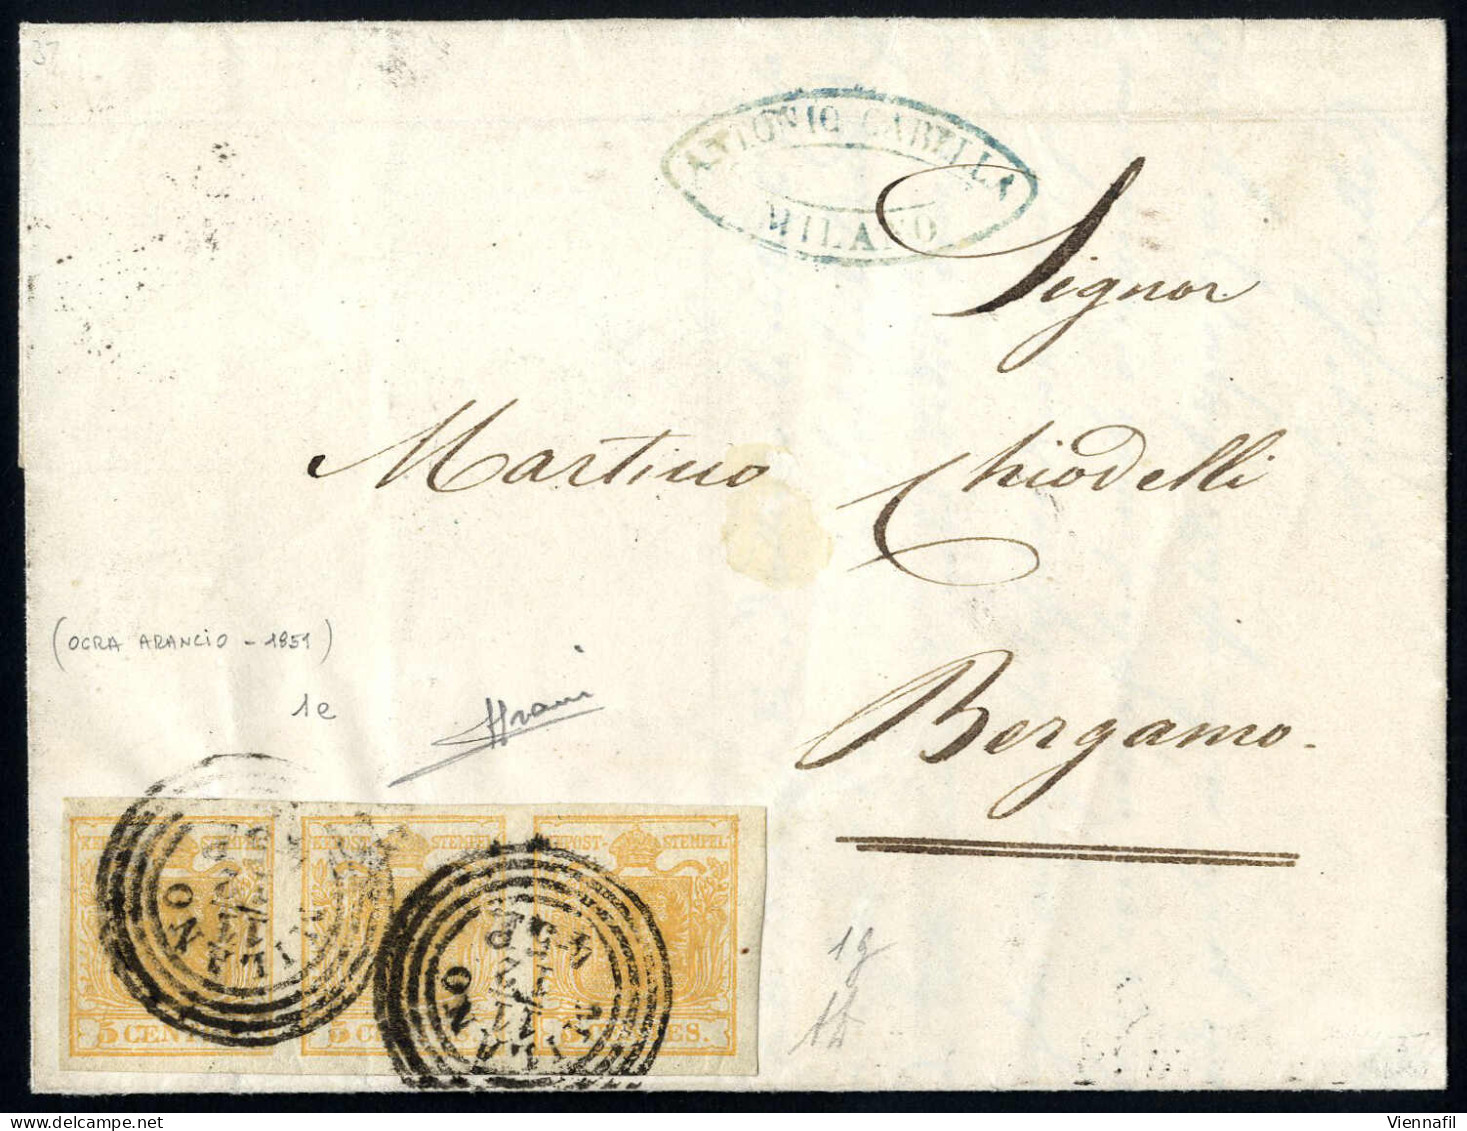 37
ANTONIO CABELLA
MILANO
Signor
Martino Chiodelli
Bergamo.
(OCRA ARANCIO - 1851)
1e
KKPOST-STEMPEL
KKPOST-STEMPEL
KKPOST-STEMPEL
MILANO
MILANO
5 CENTES.
5 CENTES.
5 CENTES.
1g
37
Viennafil